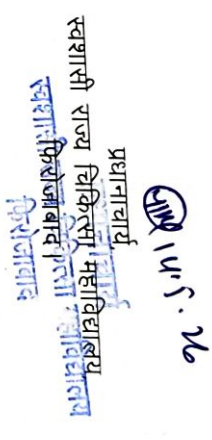 14.5.26
प्रधानाचार्य
स्वशासी राज्य चिकित्सा महाविद्यालय
फिरोजाबाद।
स्वशासी चिकित्सा महाविद्यालय
फिरोजाबाद